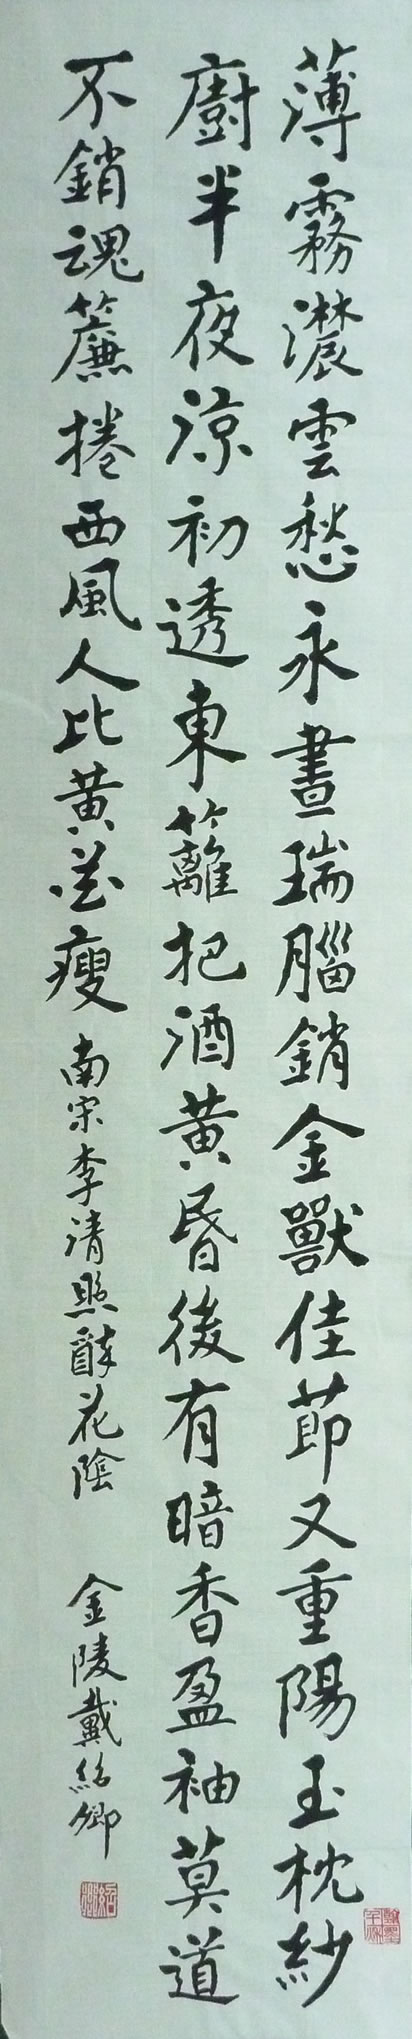 薄霧濃雲愁永晝瑞腦銷金獸佳節又重陽玉枕紗
廚半夜涼初透東籬把酒黃昏後有暗香盈袖莫道
不銷魂簾捲西風人比黃花瘦南宋李清照醉花陰 金陵戴紹卿